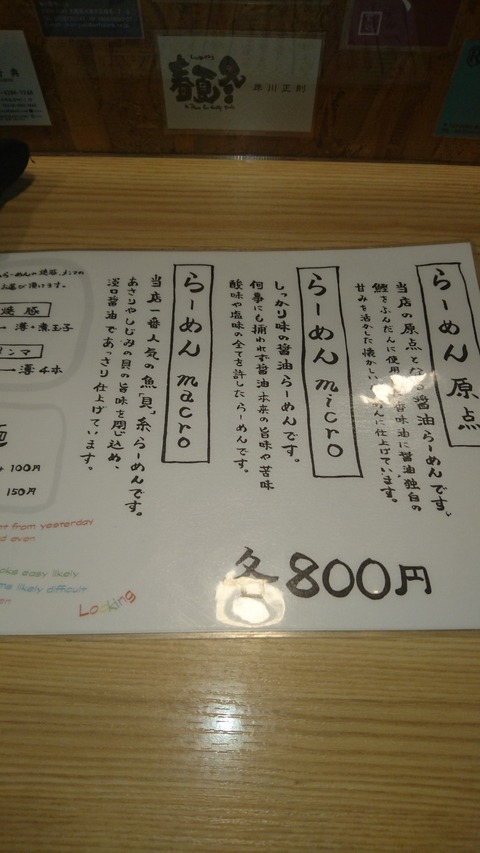 春夏冬
庄川正則
らーめん 原点
当店の原点となる醤油らーめんです。
鰹をふんだんに使用
香味油に醤油独自の
甘みを活かした懐かしい
めんに仕上げています。
らーめん micro
しっかり味の醤油らーめんです。
何事にも捕われず醤油本来の旨味や苦味
酸味や塩味の全てを許したらーめんです。
らーめん macro
当店一番人気の魚「貝」系らーめんです。
あさりやしじみの貝の旨味を閉じ込め、
淡口醤油であっさり仕上げています。
各800円
らーめんの
メンマの
お選び頂けます。
薄・煮玉子
ンマ
薄4本
100円
150円
from yesterday
even
easy likely
likely difficult
Looking